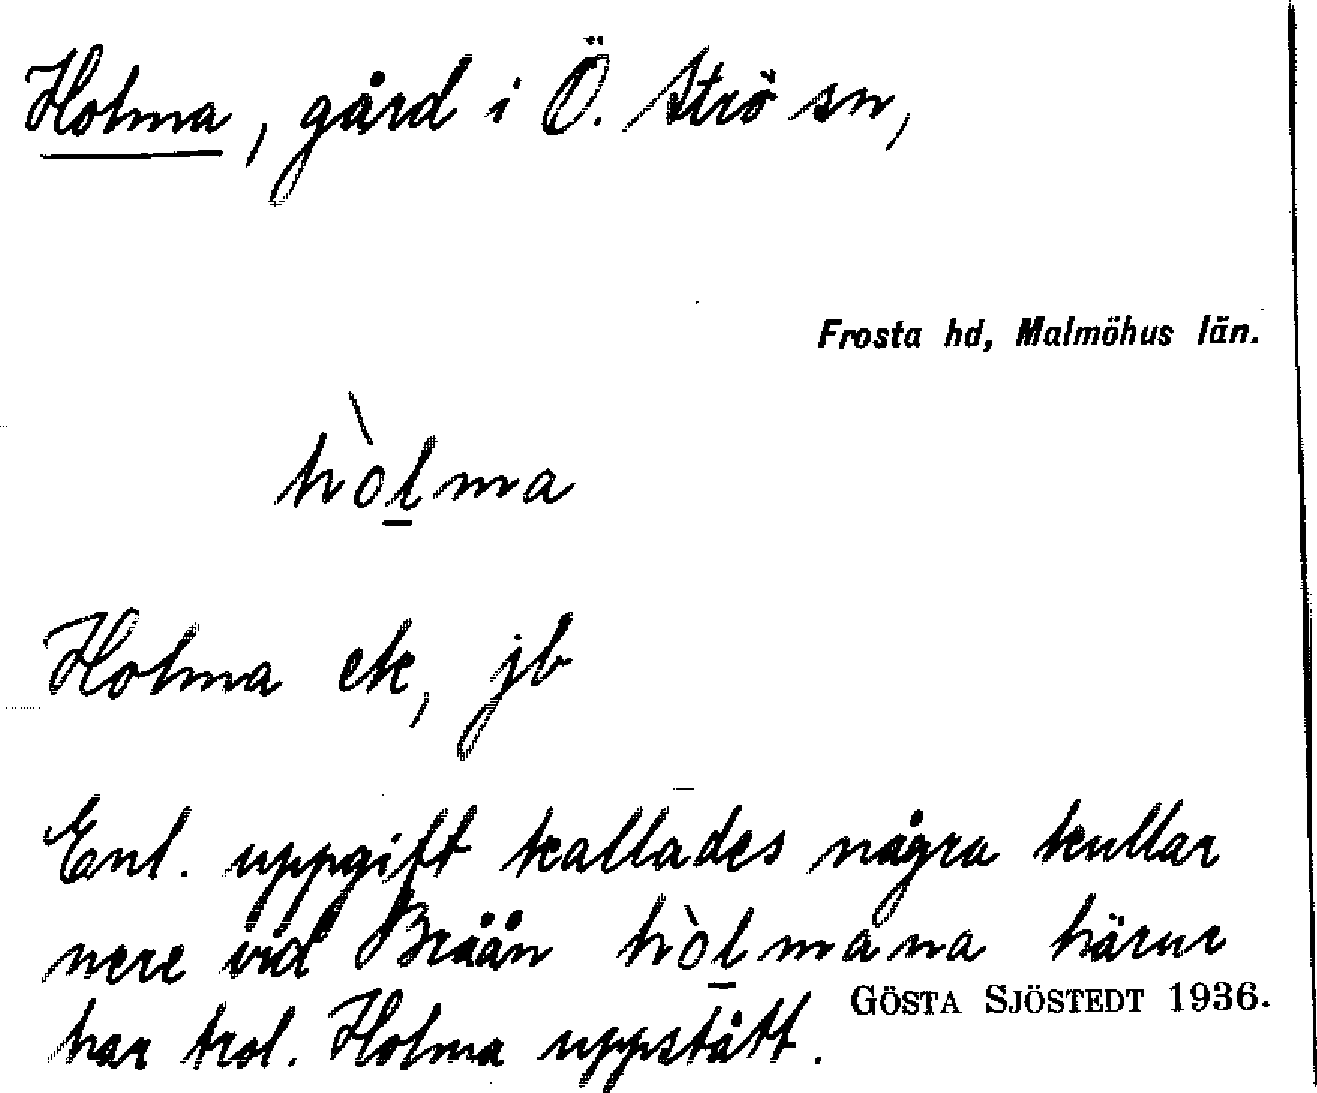 Holma, gård i Ö. Strö sn,
Frosta hd, Malmöhus län.
hòl̲ma
Holma ek, jb
Enl. uppgift kallades några kullar
nere vid Bråån hòl̲mana härur
har trol. Holma uppstått.
GÖSTA SJÖSTEDT 1936.